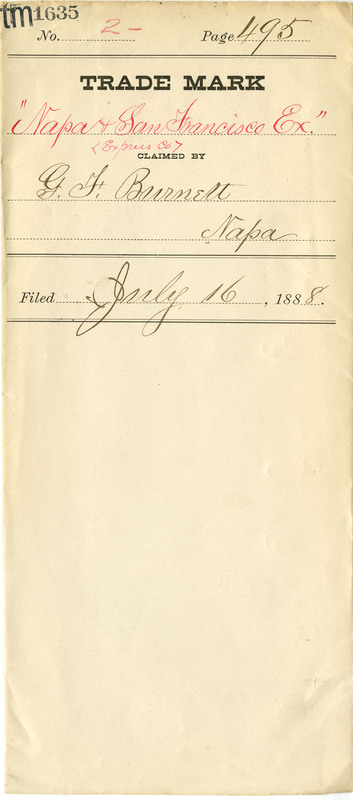 tm1635
No. 2- Page 495
TRADE MARK
"Napa & San Francisco Ex."
<Express Co>
CLAIMED BY
G. F. Burnett
Napa
Filed July 16, 1888.